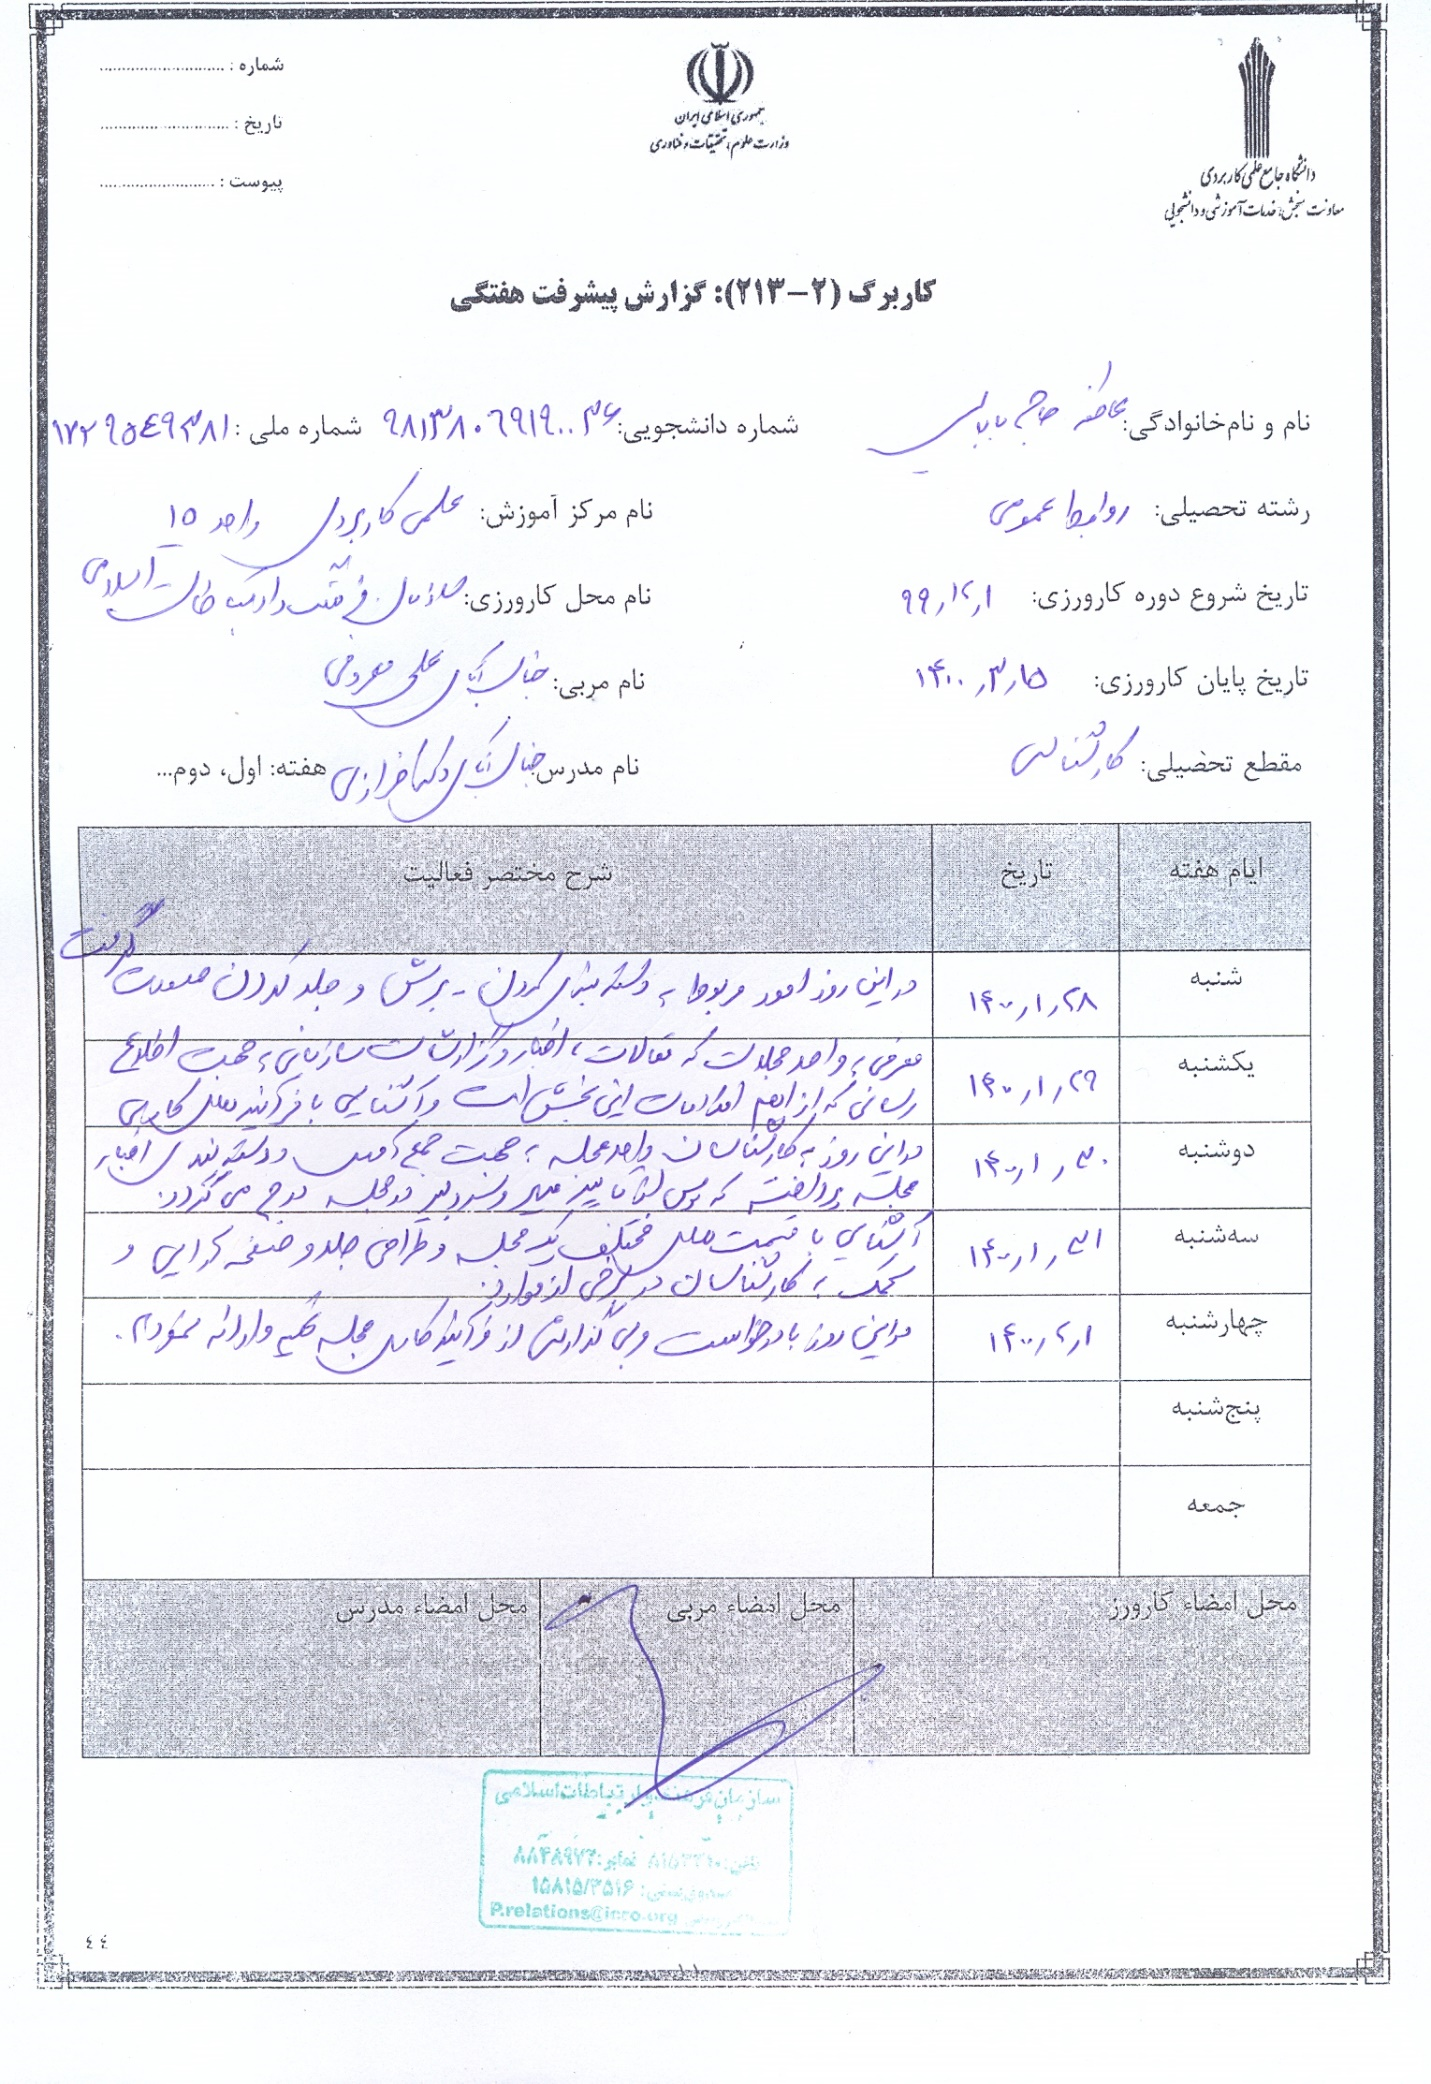 شماره : ..............................
تاریخ : ..............................
پیوست : ..............................
جمهوری اسلامی ایران
وزارت علوم، تحقیقات و فناوری
دانشگاه جامع علمی کاربردی
معاونت سنجش، خدمات آموزشی و دانشجویی
کاربرگ (۲-۲۱۳): گزارش پیشرفت هفتگی
نام و نام‌خانوادگی: عاطفه حاجی بابایی شماره دانشجویی: ۹۸۱۳۸۰۶۹۱۹۰۰۳۶ شماره ملی :
رشته تحصیلی: روابط عمومی نام مرکز آموزش: علمی کاربردی واحد ۱۵
تاریخ شروع دوره کارورزی: ۹۹٫۱۲٫۱ نام محل کارورزی: سازمان فرهنگ و ارتباطات اسلامی
تاریخ پایان کارورزی: ۱۴۰۰٫۳٫۱۵ نام مربی: جناب آقای علی معروفی
مقطع تحصیلی: کارشناسی نام مدرس: جناب آقای دکتر افرازی هفته: اول، دوم...
ایام هفته تاریخ شرح مختصر فعالیت
شنبه ۱۴۰۰٫۱٫۲۸ در این روز امور مربوط به دسته بندی کردن - برش و جلد کردن صورت گرفت
یکشنبه ۱۴۰۰٫۱٫۲۹ معرفی به واحد مجلات که مقالات، اخبار و گزارشات سازمانی به جهت اطلاع
رسانی که از اهم اقدامات این بخش است و آشنایی با فرآیند های کاربی
دوشنبه ۱۴۰۰٫۱٫۳۰ در این روز به کارشناسان واحد مجله به جهت جمع آوری و دسته بندی اخبار
مجله پرداخته که پس از تایید مدیر و سردبیر در مجله درج می گردد.
سه‌شنبه ۱۴۰۰٫۱٫۳۱ آشنایی با قسمت های مختلف یک مجله و طراحی جلد و صفحه آرایی و
کمک به کارشناسان در برخی از موارد.
چهارشنبه ۱۴۰۰٫۲٫۱ در این روز با درخواست مربی گزارش از فرآیند کامل مجله تهیه و ارائه نمودم.
پنج‌شنبه
جمعه
محل امضاء کارورز محل امضاء مربی محل امضاء مدرس
سازمان فرهنگ و ارتباطات اسلامی
نمابر:
صندوق پستی: ۱۵۸۱۵/۳۵۱۶
P.relations@icro.org
۴۴